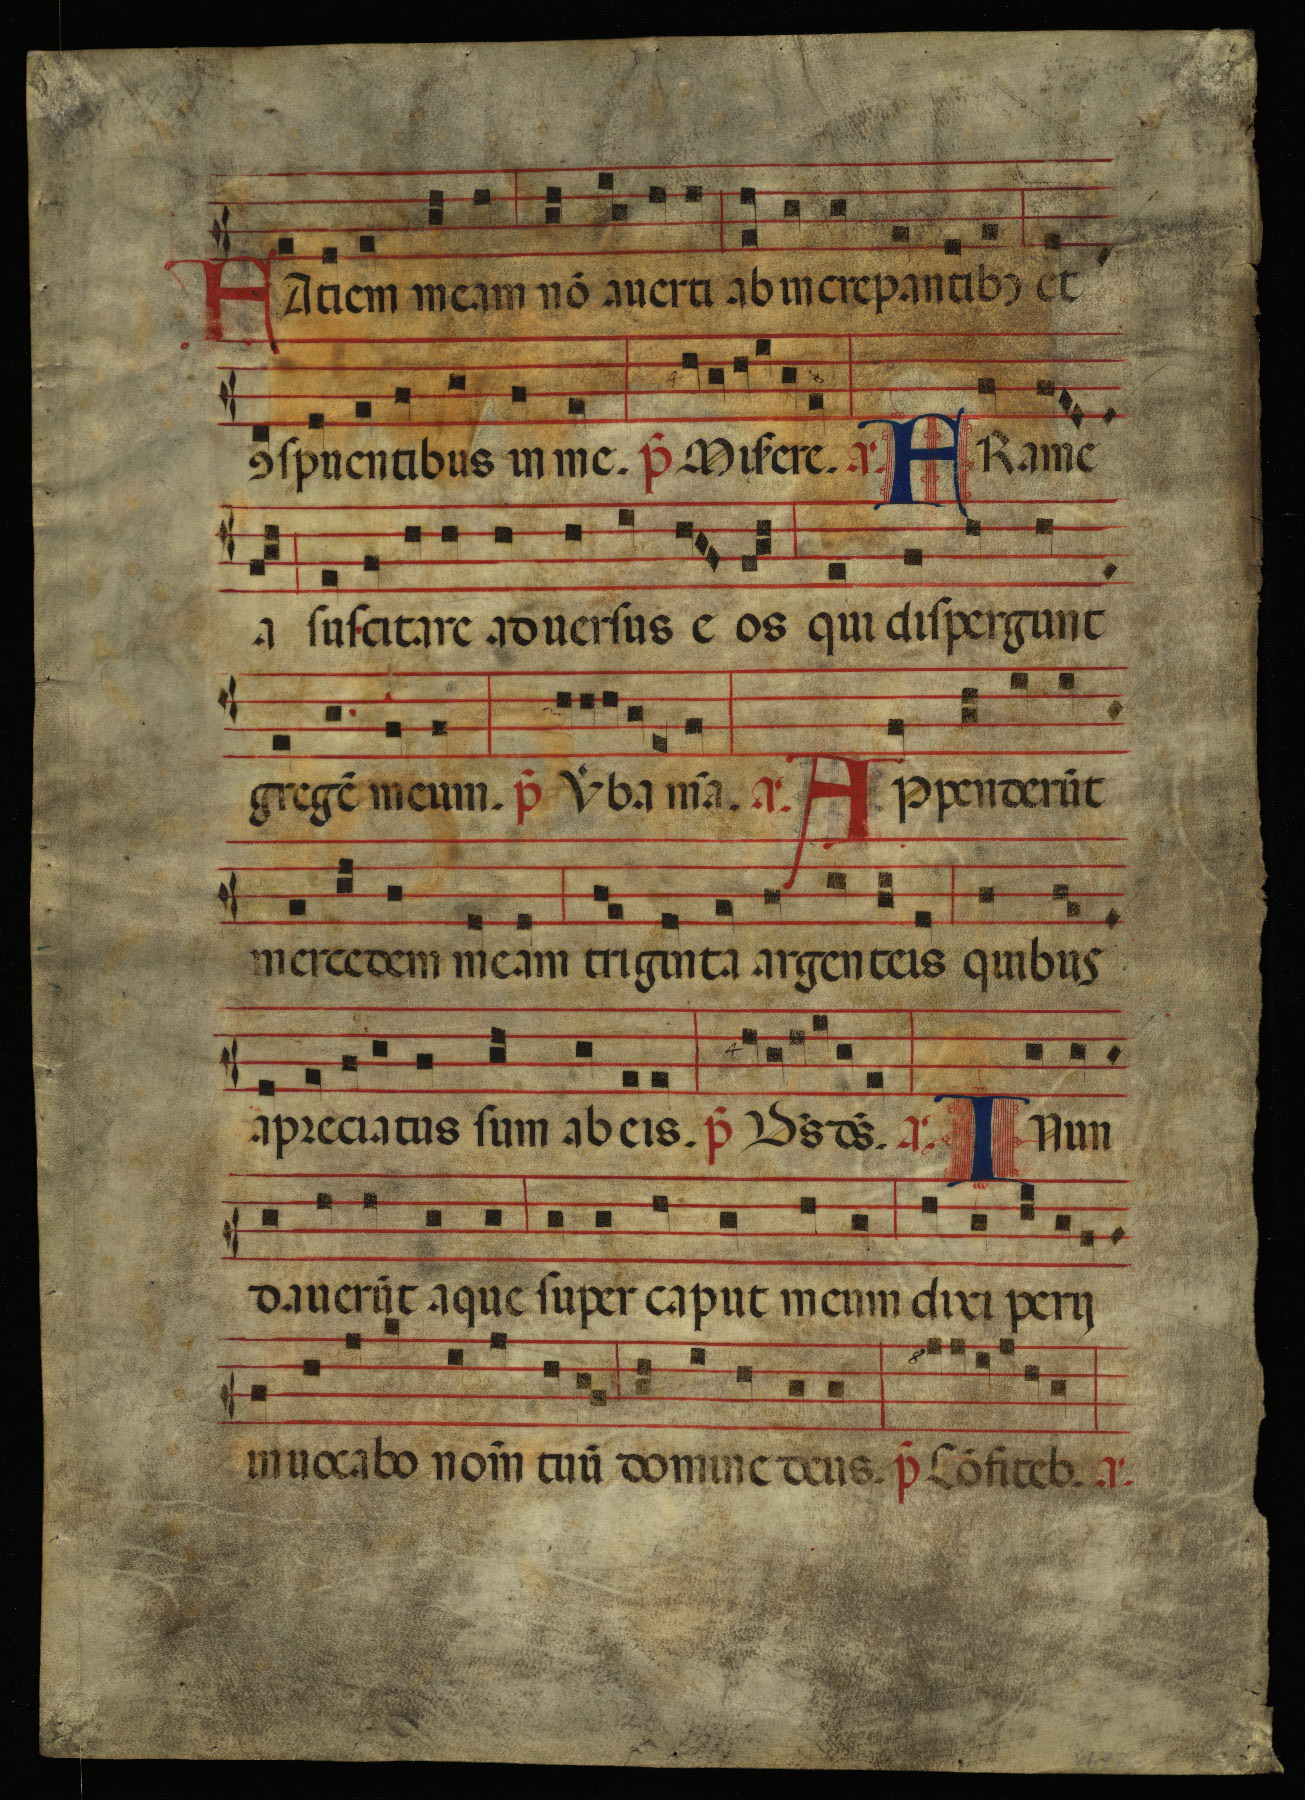 FAciem meam nō auerti ab increpantibꝯ et
ꝯspuentibus in me. p̄ Miſere. a. FRame
a suscitare aduersus e os qui dispergunt
gregē meum. p̄ V̇ba m̄a. a. APpenderūt
mercedem meam triginta argenteis quibus
apreciatus sum ab eis. p̄ D̄s d̄s. a. INun
dauerūt aque super caput meum dixi perij
inuocabo nom̄ tuū domine deus. p̄ Cōfiteb. a.